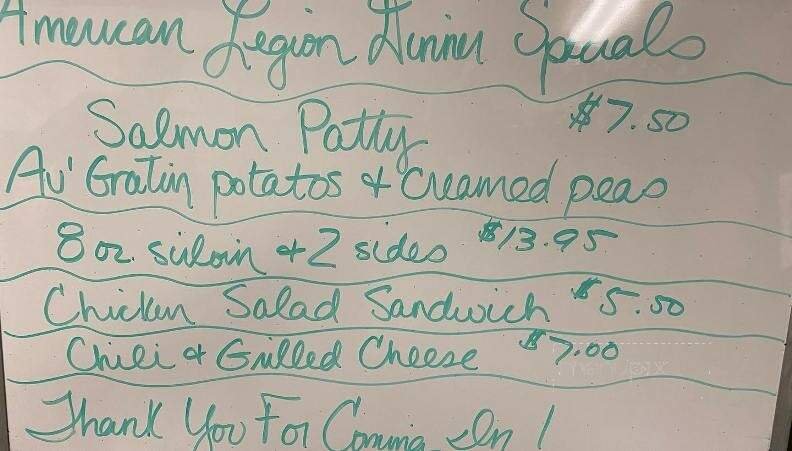 American Legion Dinner Specials
Salmon Patty $7.50
Au' Gratin potatos + Creamed peas
8 oz. sirloin + 2 sides $13.95
Chicken Salad Sandwich $5.50
Chili + Grilled Cheese $7.00
Thank You For Coming In!